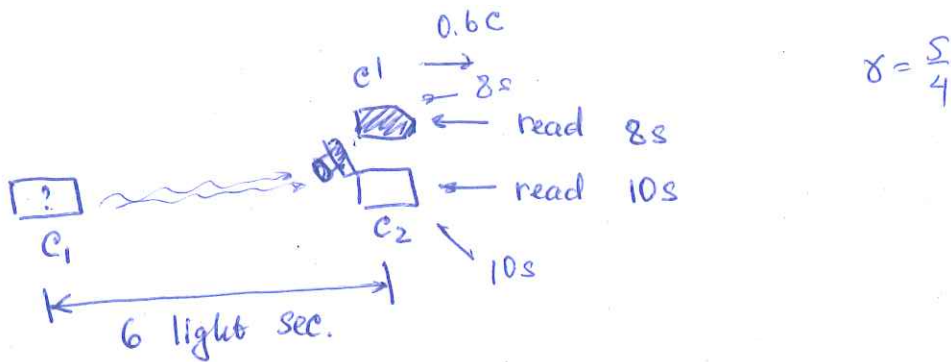 0.6C
C'
8s
γ = 5/4
read 8s
?
read 10s
C₁
C₂
10s
6 light sec.